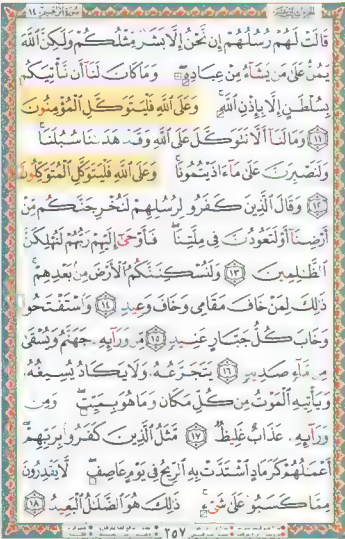 سورة إبراهيم ١٤
قَالَتْ لَهُمْ رُسُلُهُمْ إِن نَّحْنُ إِلَّا بَشَرٌ مِّثْلُكُمْ وَلَٰكِنَّ ٱللَّهَ
يَمُنُّ عَلَىٰ مَن يَشَآءُ مِنْ عِبَادِهِۦ ۖ وَمَا كَانَ لَنَآ أَن نَّأْتِيَكُم
بِسُلْطَٰنٍ إِلَّا بِإِذْنِ ٱللَّهِ ۚ وَعَلَى ٱللَّهِ فَلْيَتَوَكَّلِ ٱلْمُؤْمِنُونَ
١١ وَمَا لَنَآ أَلَّا نَتَوَكَّلَ عَلَى ٱللَّهِ وَقَدْ هَدَىٰنَا سُبُلَنَا ۚ
وَلَنَصْبِرَنَّ عَلَىٰ مَآ ءَاذَيْتُمُونَا ۚ وَعَلَى ٱللَّهِ فَلْيَتَوَكَّلِ ٱلْمُتَوَكِّلُونَ
١٢ وَقَالَ ٱلَّذِينَ كَفَرُوا۟ لِرُسُلِهِمْ لَنُخْرِجَنَّكُم مِّنْ
أَرْضِنَآ أَوْ لَتَعُودُنَّ فِى مِلَّتِنَا ۖ فَأَوْحَىٰٓ إِلَيْهِمْ رَبُّهُمْ لَنُهْلِكَنَّ
ٱلظَّٰلِمِينَ ١٣ وَلَنُسْكِنَنَّكُمُ ٱلْأَرْضَ مِنۢ بَعْدِهِمْ ۚ
ذَٰلِكَ لِمَنْ خَافَ مَقَامِى وَخَافَ وَعِيدِ ١٤ وَٱسْتَفْتَحُوا۟
وَخَابَ كُلُّ جَبَّارٍ عَنِيدٍ ١٥ مِّن وَرَآئِهِۦ جَهَنَّمُ وَيُسْقَىٰ
مِن مَّآءٍ صَدِيدٍ ١٦ يَتَجَرَّعُهُۥ وَلَا يَكَادُ يُسِيغُهُۥ
وَيَأْتِيهِ ٱلْمَوْتُ مِن كُلِّ مَكَانٍ وَمَا هُوَ بِمَيِّتٍ ۖ وَمِن
وَرَآئِهِۦ عَذَابٌ غَلِيظٌ ١٧ مَّثَلُ ٱلَّذِينَ كَفَرُوا۟ بِرَبِّهِمْ ۖ
أَعْمَٰلُهُمْ كَرَمَادٍ ٱشْتَدَّتْ بِهِ ٱلرِّيحُ فِى يَوْمٍ عَاصِفٍ ۖ لَّا يَقْدِرُونَ
مِمَّا كَسَبُوا۟ عَلَىٰ شَىْءٍ ۚ ذَٰلِكَ هُوَ ٱلضَّلَٰلُ ٱلْبَعِيدُ ١٨
٢٥٧